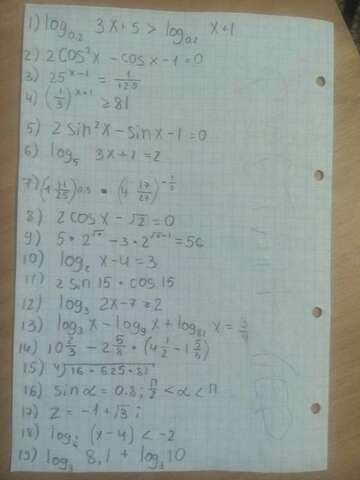 1) log₀.₂ 3x+5 > log₀.₂ x+1
2) 2cos²x - cosx - 1=0
3) 25ˣ⁻¹ = 1/125
4) (1/3)ˣ⁺¹ ≥ 81
5) 2sin²x - sinx - 1 = 0
6) log₅ 3x+1 = 2
7) 
8) 2cosx - √2 = 0
9) 5 • 2^√x - 3 • 2^√x-1 = 56
10) log₂ x-4 = 3
11) 2 sin 15 • cos 15
12) log₃ 2x-7 ≥ 2
13) log₃x - log₉x + log₈₁ x = 3/4
14) 10 2/3 - 2 5/8 • (4 1/2 - 1 5/6)
15) ⁴√16 • 625 • 81
16) sin α = 0.8; π/2 < α < π
17) z = -1 + √3 i
18) (x-4) < -2
19) log₃ 8,1 + log₃ 10